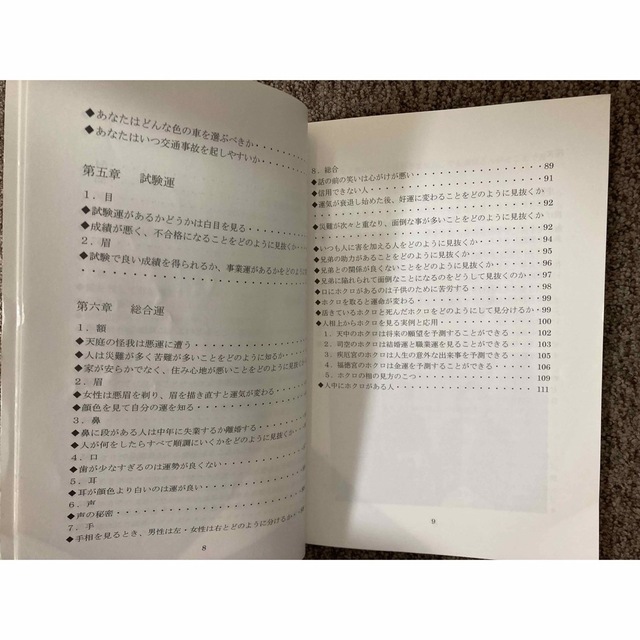 ◆あなたはどんな色の車を選ぶべきか・・・・
◆あなたはいつ交通事故を起しやすいか・・・・
第五章　試験運
1．目
◆試験運があるかどうかは白目を見る・・・・
◆成績が悪く、不合格になることをどのように見抜くか・・
2．眉
◆試験で良い成績を得られるか、事業運があるかをどのよ
第六章　総合運
1．額
◆天庭の怪我は悪運に遭う・・・・
◆人は災難が多く苦難が多いことをどのように知るか・・・・
◆家が安らかでなく、住み心地が悪いことをどのように見抜くか
2．眉
◆女性は悪眉を剃り、眉を描き直すと運気が変わる・・・・
◆顔色を見て自分の運を知る・・・・
3．鼻
◆鼻に段がある人は中年に失業するか離婚する・・・・
◆人が何をしたらすべて順調にいくかをどのように見抜くか・・
4．口
◆歯が少なすぎるのは運勢が良くない・・・・
5．耳
◆耳が顔色より白いのは運が良い・・・・
6．声
◆声の秘密・・・・
7．手
◆手相を見るとき、男性は左・女性は右とどのように分けるか
8
8．総合・・・・ 89
◆話の前の笑いは心がけが悪い・・・・ 91
◆信用できない人・・・・ 91
◆運気が衰退し始めた後、好運に変わることをどのように見抜くか
・・・・ 92
◆災難が次々と重なり、面倒な事が多いことをどのように見抜くか
・・・・ 92
◆いつも人に害を加える人をどのように見抜くか・・・・ 94
◆兄弟の助力があることをどのように見抜くか・・・・ 95
◆兄弟との関係が良くないことをどのように見抜くか・・・・ 96
◆兄弟に陥れられて面倒なことになるのをどうして見抜くのか・・・・ 97
◆口にホクロがあるのは子供のために苦労する・・・・ 98
◆ホクロを取ると運命が変わる・・・・ 98
◆活きているホクロと死んだホクロをどのようにして見分けるか・・・・ 99
◆人相上からホクロを見る実例と応用・・・・ 100
1．天中のホクロは将来の願望を予測することができる・・・・ 102
2．司空のホクロは結婚運と職業運を見ることができる・・・・ 103
3．疾厄宮のホクロは人生の意外な出来事を予測できる・・・・ 105
4．福徳宮のホクロは金運を予測することができる・・・・ 106
5．ホクロの相の見方のこつ・・・・ 109
◆人中にホクロがある人・・・・ 111
9